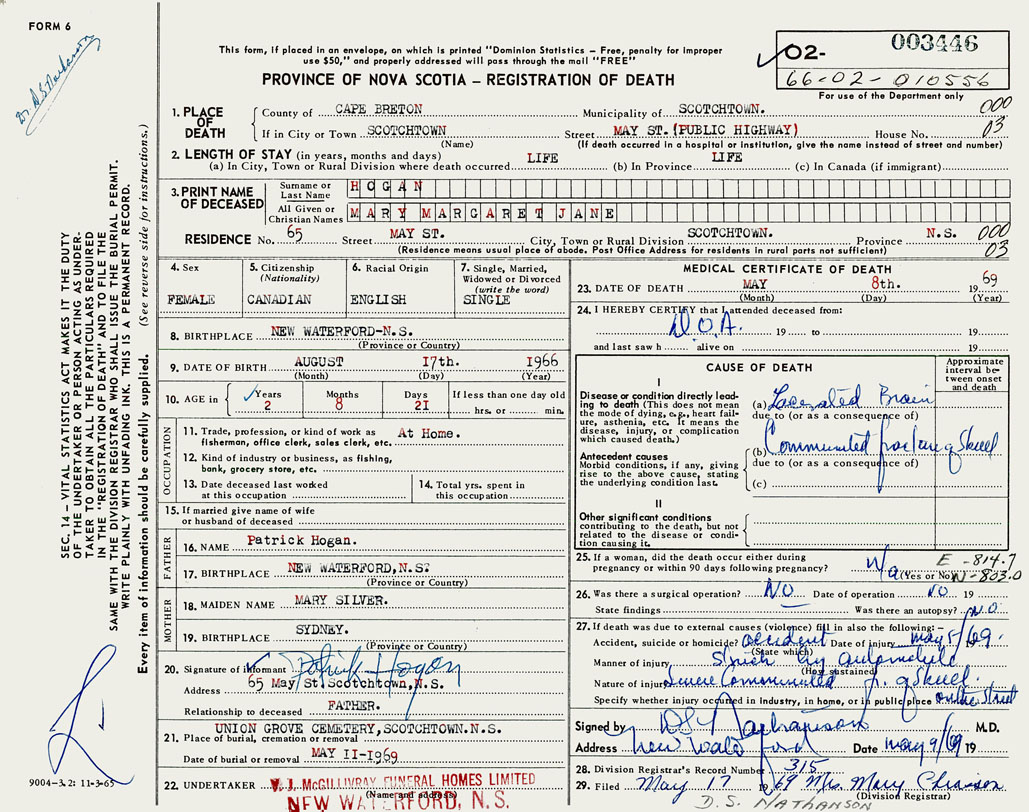 FORM 6
Dr. D S Nathanson
This form, if placed in an envelope, on which is printed "Dominion Statistics – Free, penalty for improper
use $50," and properly addressed will pass through the mail "FREE"
PROVINCE OF NOVA SCOTIA – REGISTRATION OF DEATH
02- 003446
66-02-010556
For use of the Department only
1. PLACE OF DEATH County of CAPE BRETON Municipality of SCOTCHTOWN. 000
If in City or Town SCOTCHTOWN Street MAY ST.(PUBLIC HIGHWAY) House No. 03
(Name) (If death occurred in a hospital or institution, give the name instead of street and number)
2. LENGTH OF STAY (in years, months and days) LIFE LIFE
(a) In City, Town or Rural Division where death occurred (b) In Province (c) In Canada (if immigrant)
3. PRINT NAME OF DECEASED
Surname or Last Name HOGAN
All Given or Christian Names MARY MARGARET JANE
RESIDENCE No. 65 Street MAY ST. City, Town or Rural Division SCOTCHTOWN. Province N.S. 000
(Residence means usual place of abode. Post Office Address for residents in rural parts not sufficient) 03
4. Sex FEMALE
5. Citizenship (Nationality) CANADIAN
6. Racial Origin ENGLISH
7. Single, Married, Widowed or Divorced (write the word) SINGLE
8. BIRTHPLACE NEW WATERFORD-N.S.
(Province or Country)
9. DATE OF BIRTH AUGUST 17th. 1966
(Month) (Day) (Year)
10. AGE in Years 2 Months 8 Days 21 If less than one day old hrs. or min.
OCCUPATION
11. Trade, profession, or kind of work as fisherman, office clerk, sales clerk, etc. At Home.
12. Kind of industry or business, as fishing, bank, grocery store, etc.
13. Date deceased last worked at this occupation
14. Total yrs. spent in this occupation
15. If married give name of wife or husband of deceased
FATHER
16. NAME Patrick Hogan.
17. BIRTHPLACE NEW WATERFORD,N.S.
(Province or Country)
MOTHER
18. MAIDEN NAME MARY SILVER.
19. BIRTHPLACE SYDNEY.
(Province or Country)
20. Signature of informant Patrick Hogan
Address 65 May St.Scotchtown,N.S.
Relationship to deceased FATHER.
UNION GROVE CEMETERY,SCOTCHTOWN.N.S.
21. Place of burial, cremation or removal
Date of burial or removal MAY 11-1969
22. UNDERTAKER V. J. McGILLIVRAY FUNERAL HOMES LIMITED
(Name and address)
NEW WATERFORD, N. S.
MEDICAL CERTIFICATE OF DEATH
23. DATE OF DEATH MAY 8th. 19 69
(Month) (Day) (Year)
24. I HEREBY CERTIFY that I attended deceased from:
D.O.A. 19 to 19
and last saw h alive on 19
CAUSE OF DEATH
Approximate interval between onset and death
I
Disease or condition directly leading to death (This does not mean the mode of dying, e.g., heart failure, asthenia, etc. It means the disease, injury, or complication which caused death.)
(a) Lacerated Brain
due to (or as a consequence of)
Antecedent causes
Morbid conditions, if any, giving rise to the above cause, stating the underlying condition last.
(b) Communited fracture of Skull
due to (or as a consequence of)
(c)
II
Other significant conditions
contributing to the death, but not related to the disease or condition causing it.
25. If a woman, did the death occur either during pregnancy or within 90 days following pregnancy? N/a (Yes or No)
E -814.7
N-803.0
26. Was there a surgical operation? NO Date of operation NO 19
State findings Was there an autopsy? NO
27. If death was due to external causes (violence) fill in also the following:–
Accident, suicide or homicide? accident Date of injury may 5/69. 19
(State which)
Manner of injury Struck by automobile
(How sustained)
Nature of injury Severe Communited fr. of Skull.
Specify whether injury occurred in industry, in home, or in public place on the Street
Signed by D S Nathanson M.D.
Address New Waterford Date may 9/69 19
28. Division Registrar's Record Number 315
29. Filed May 17 19 69 Mrs. Mary Chiasson
(Division Registrar)
D. S. NATHANSON
SEC. 14 – VITAL STATISTICS ACT MAKES IT THE DUTY
OF THE UNDERTAKER OR PERSON ACTING AS UNDER-
TAKER TO OBTAIN ALL THE PARTICULARS REQUIRED
IN THE "REGISTRATION OF DEATH" AND TO FILE THE
SAME WITH THE DIVISION REGISTRAR WHO SHALL ISSUE THE BURIAL PERMIT.
WRITE PLAINLY WITH UNFADING INK. THIS IS A PERMANENT RECORD.
Every item of information should be carefully supplied. (See reverse side for instructions.)
9004-3.2: 11-3-65